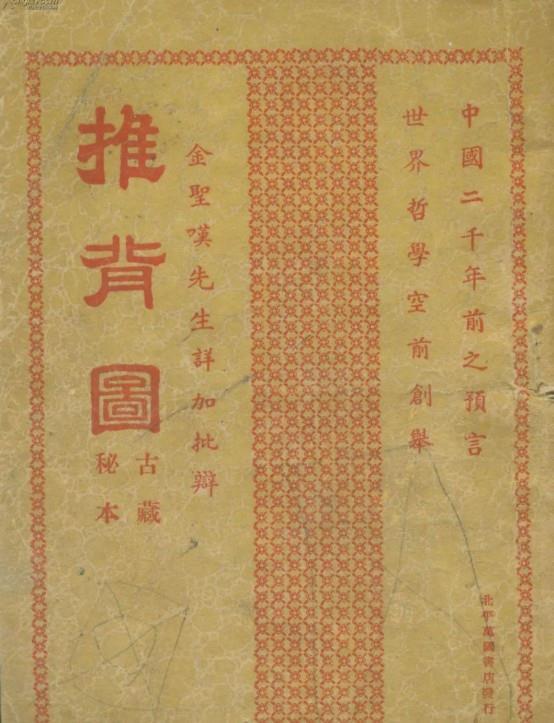 中國二千年前之預言
世界哲學空前創舉
金聖嘆先生詳加批辯
推背圖
古藏
秘本
北平萬國書店發行